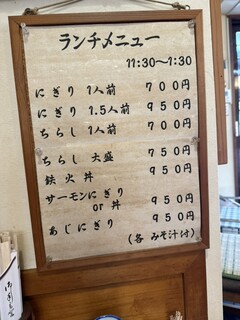 ランチメニュー
11:30〜1:30
にぎり 1人前 700円
にぎり 1.5人前 950円
ちらし 1人前 700円
ちらし 大盛 750円
鉄火丼 950円
サーモンにぎり
or 丼 950円
あじにぎり 950円
(各 みそ汁付)